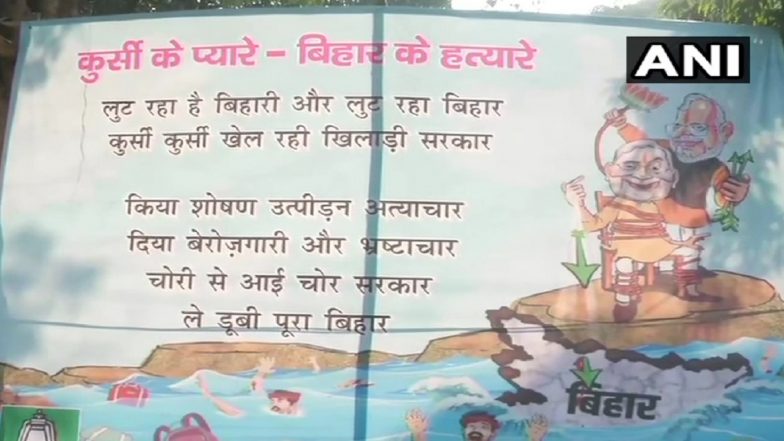 कुर्सी के प्यारे – बिहार के हत्यारे
ANI
लुट रहा है बिहारी और लुट रहा बिहार
कुर्सी कुर्सी खेल रही खिलाड़ी सरकार
किया शोषण उत्पीड़न अत्याचार
दिया बेरोज़गारी और भ्रष्टाचार
चोरी से आई चोर सरकार
ले डूबी पूरा बिहार
बिहार